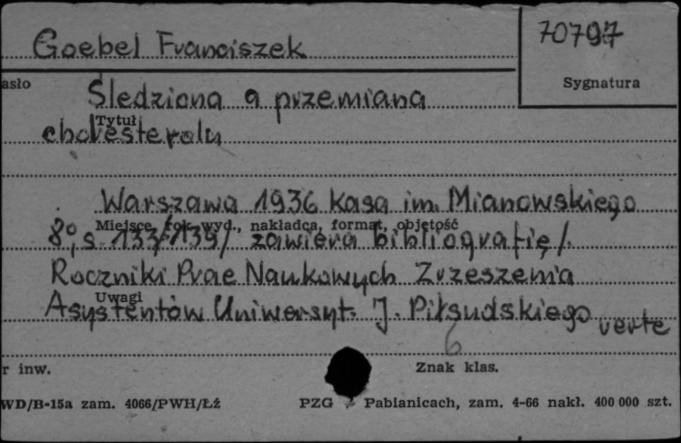 Goebel Franciszek
70797
asło
Sygnatura
Śledziona a przemiana
Tytuł
cholesterolu
Warszawa 1936 Kasa im. Mianowskiego
Miejsce, rok wyd., nakładca, format, objętość
8°, s 133/139/ zawiera bibliografię/.
Roczniki Prac Naukowych Zrzeszenia
Uwagi
Asystentów Uniwersyt. J. Piłsudskiego verte
6
r inw.
Znak klas.
WD/B-15a zam. 4066/PWH/Łź
PZG Pabianicach, zam. 4-66 nakł. 400 000 szt.